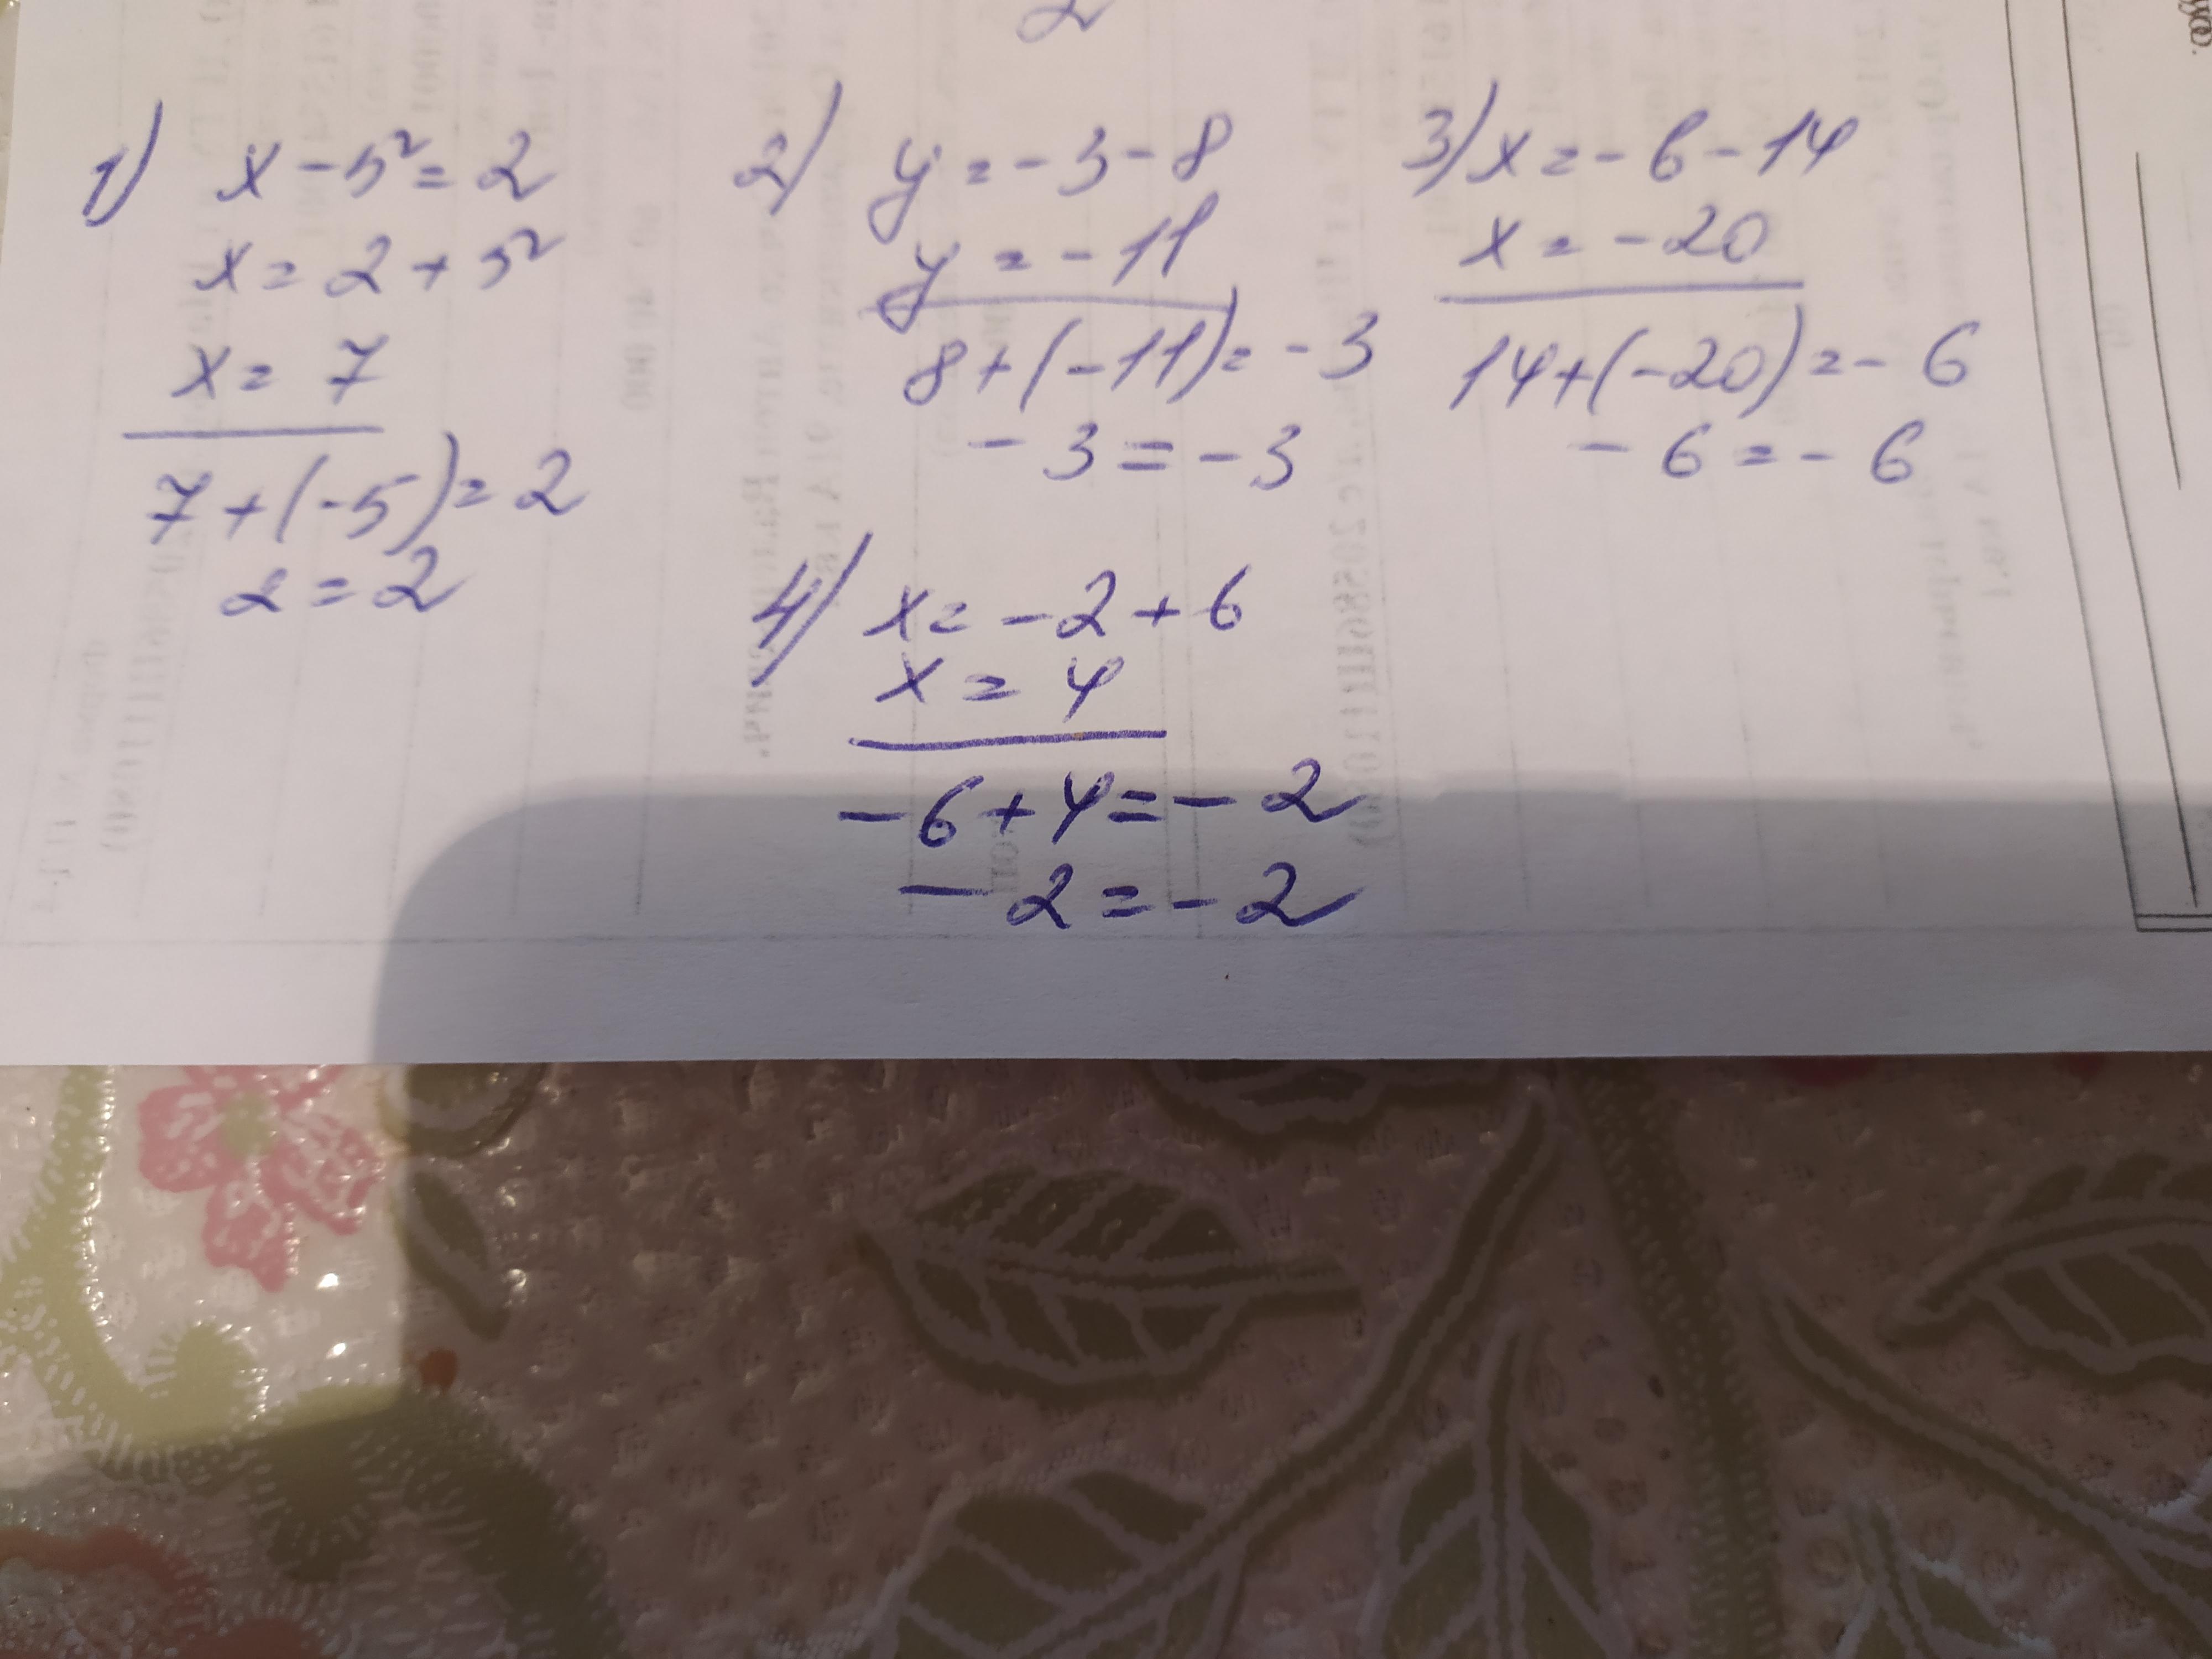 2
1) x - 5² = 2
x = 2 + 5²
x = 7
7 + (-5) = 2
2 = 2
2) y = - 3 - 8
y = - 11
8 + (-11) = - 3
- 3 = - 3
3) x = - 6 - 14
x = - 20
14 + (-20) = - 6
- 6 = - 6
4) x = - 2 + 6
x = 4
- 6 + 4 = - 2
- 2 = - 2